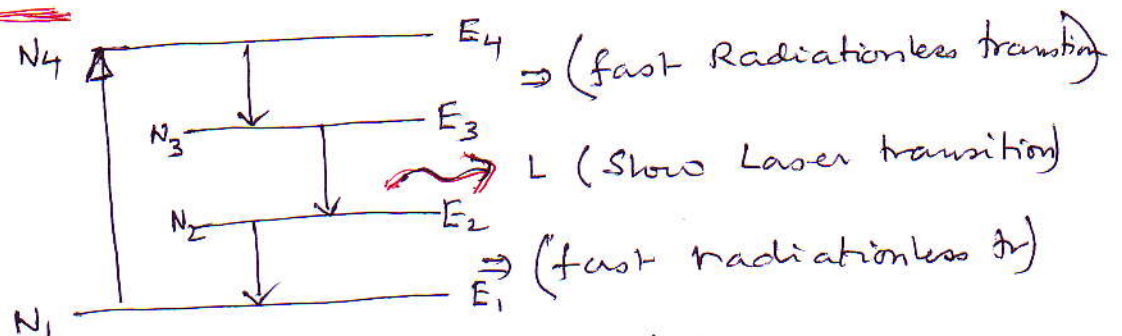 N4 E4 ⇒ (fast Radiationless transition)
N3 E3
L (Slow Laser transition)
N2 E2
⇒ (fast radiationless tr)
N1 E1